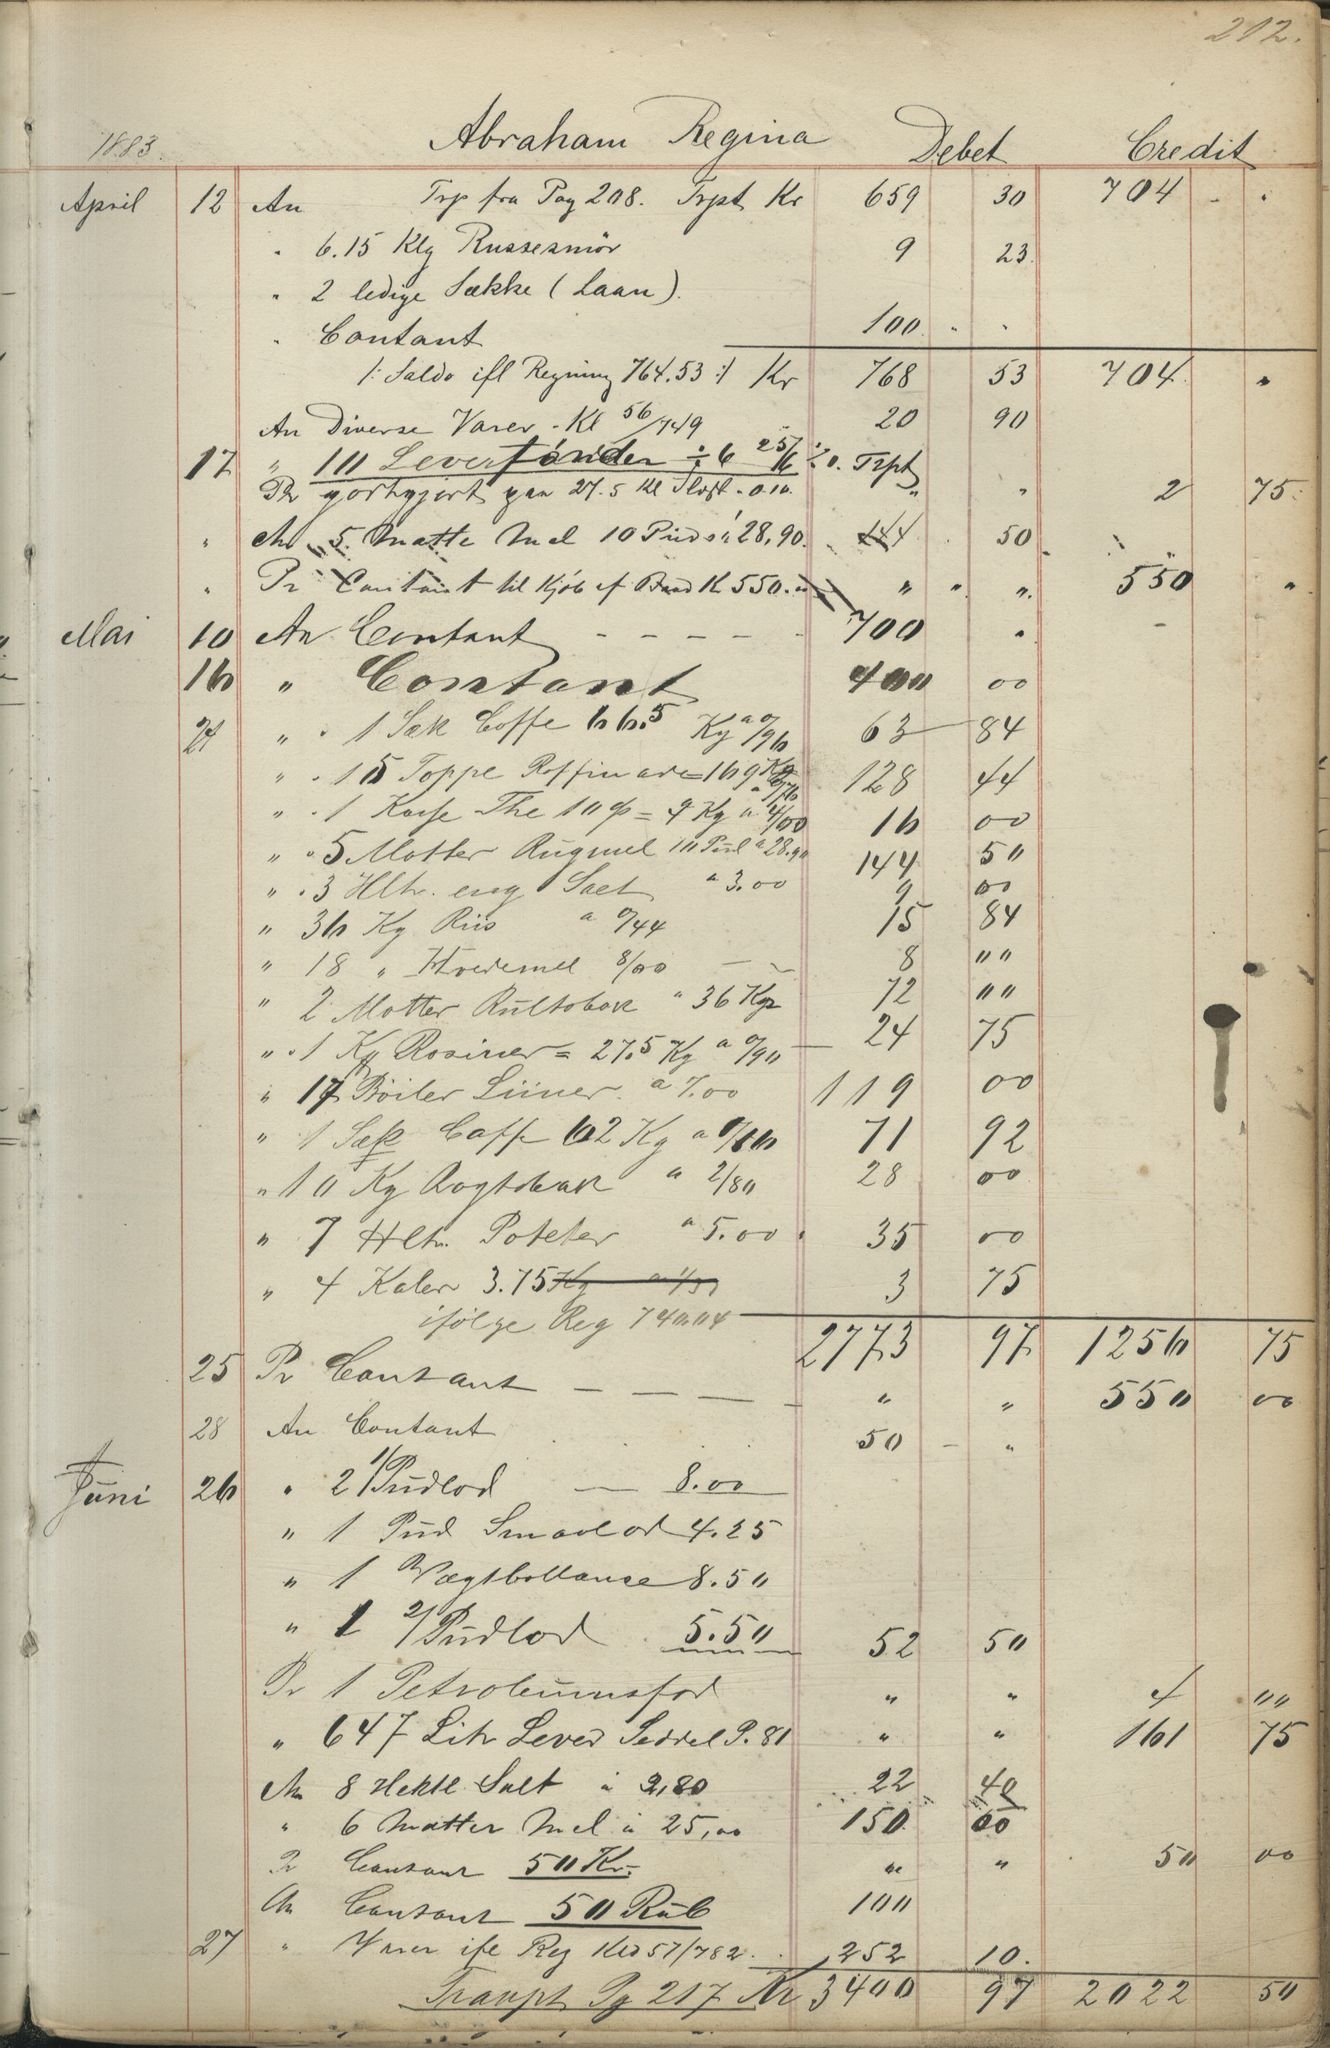 212.
1883. Abraham Regina Debet Credit
April 12 An Trp fra Pag 208. Trpt Kr 659 30 704 - "
" 6.15 Klg Russesmör 9 23
" 2 ledige Sække (Laan).
" Contant 100 " "
/: Saldo ifl Regning 764.53 :/ Kr 768 53 704 "
An Diverse Varer - Kl 56/749 20 90
17 " 10 Levertönder ÷ 6 Trpt
Pr godtgjort 27.5 Kl " " 2 75
" An 5 Matte Mel 10 Pud á 28,90 144 50
" Pr Contant til Kjöb af Baad Kr 550. " " " 550 "
Mai 10 An Contant - - - - - 700 "
16 " Contant 400 00
21 " " 1 Sæk Coffe 66.5 Kg a 0/96 63 84
" " 15 Toppe Raffinade = 169 Kg a 0/76 128 44
" " 1 Kasse The 10 ₰ = 4 Kg a 4/00 16 00
" " 5 Matter Rugmel 10 Pud a 28.90 144 50
" " 3 Hltr. eng Salt a 3.00 9 00
" 36 Kg Riis a 0/44 15 84
" 18 " Hvedemel 8/00 - - 8 " "
" 2 Matter Rultobak " 36 Kgr 72 " "
" " 1 Kg Rosiner = 27.5 Kg a 0/90 24 75
" 17 Böiler Liiner. a 7.00 119 00
" 1 Sæk Caffe 62 Kg a 1/16 71 92
" 10 Kg Rogtobak a 2/80 28 00
" 7 Hltr. Poteter a 5.00 35 00
" 4 Kaler 3.75 Kg 3 75
ifölge Reg 740.04 2773 97 1256 75
25 Pr Contant - - - - " " 550 00
28 An Contant 50 - "
Juni 26 " 2 1/Pudlod - 8.00
" 1 Pud Smaalod 4.25
" 1 Vægtballanse 8.50
" 1 2/Pudlod 5.50 52 50
Pr 1 Petroleumsfad " " 4 " "
" 647 Litr Lever Seddel P. 81 " " 161 75
An 8 Hektl. Salt á 2,80 22 40
" 6 Matter Mel á 25,00 150 00
Pr Contant 50 Kr. " " 50 00
An Contant 50 Rub 100
27 " Varer ifl Reg Kld 57/782. 252 10.
Transpt Pg 217 Kr 3400 97 2022 50